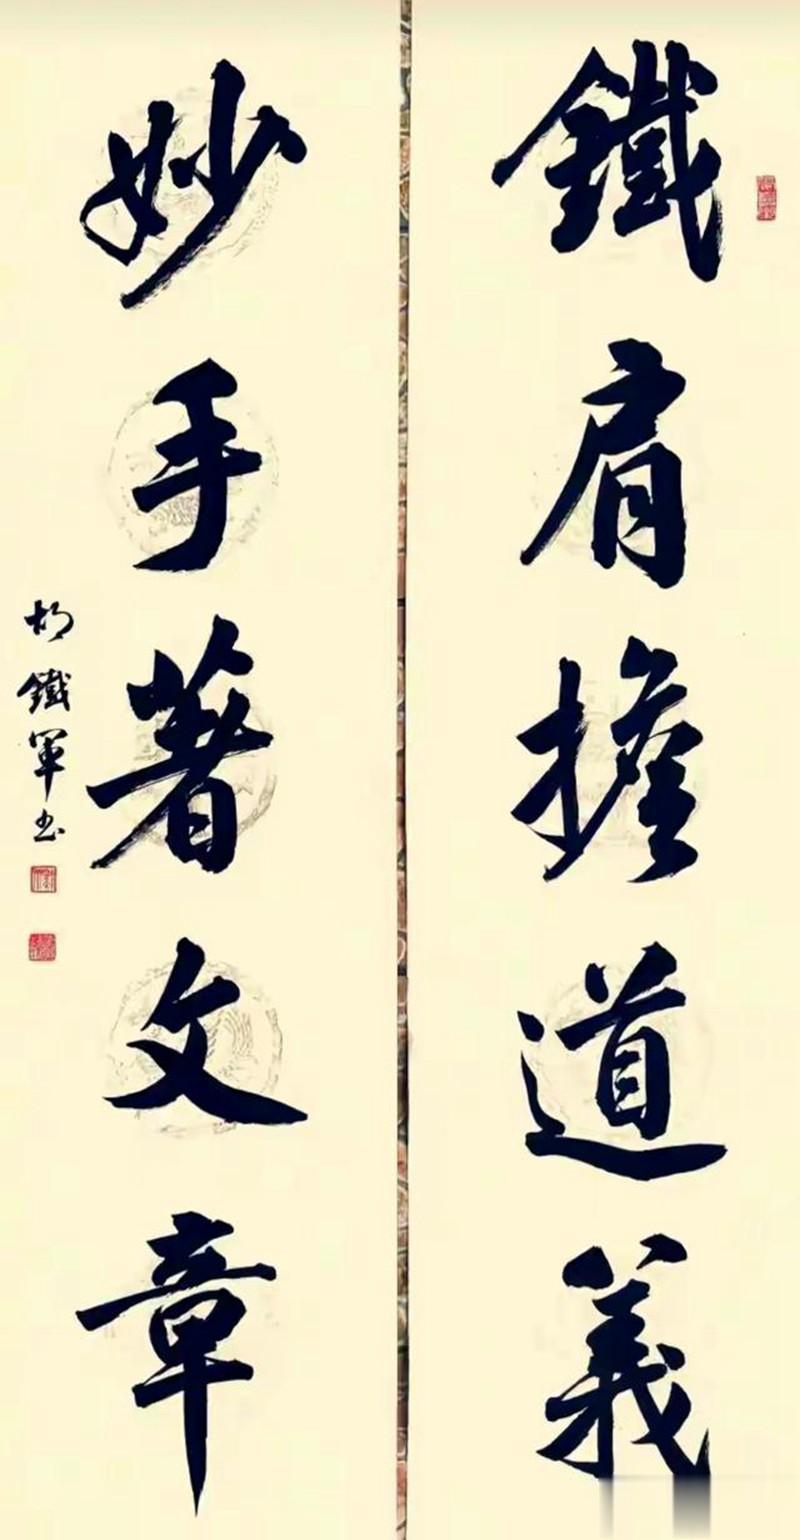 鐵肩擔道義
妙手著文章
胡鐵軍书